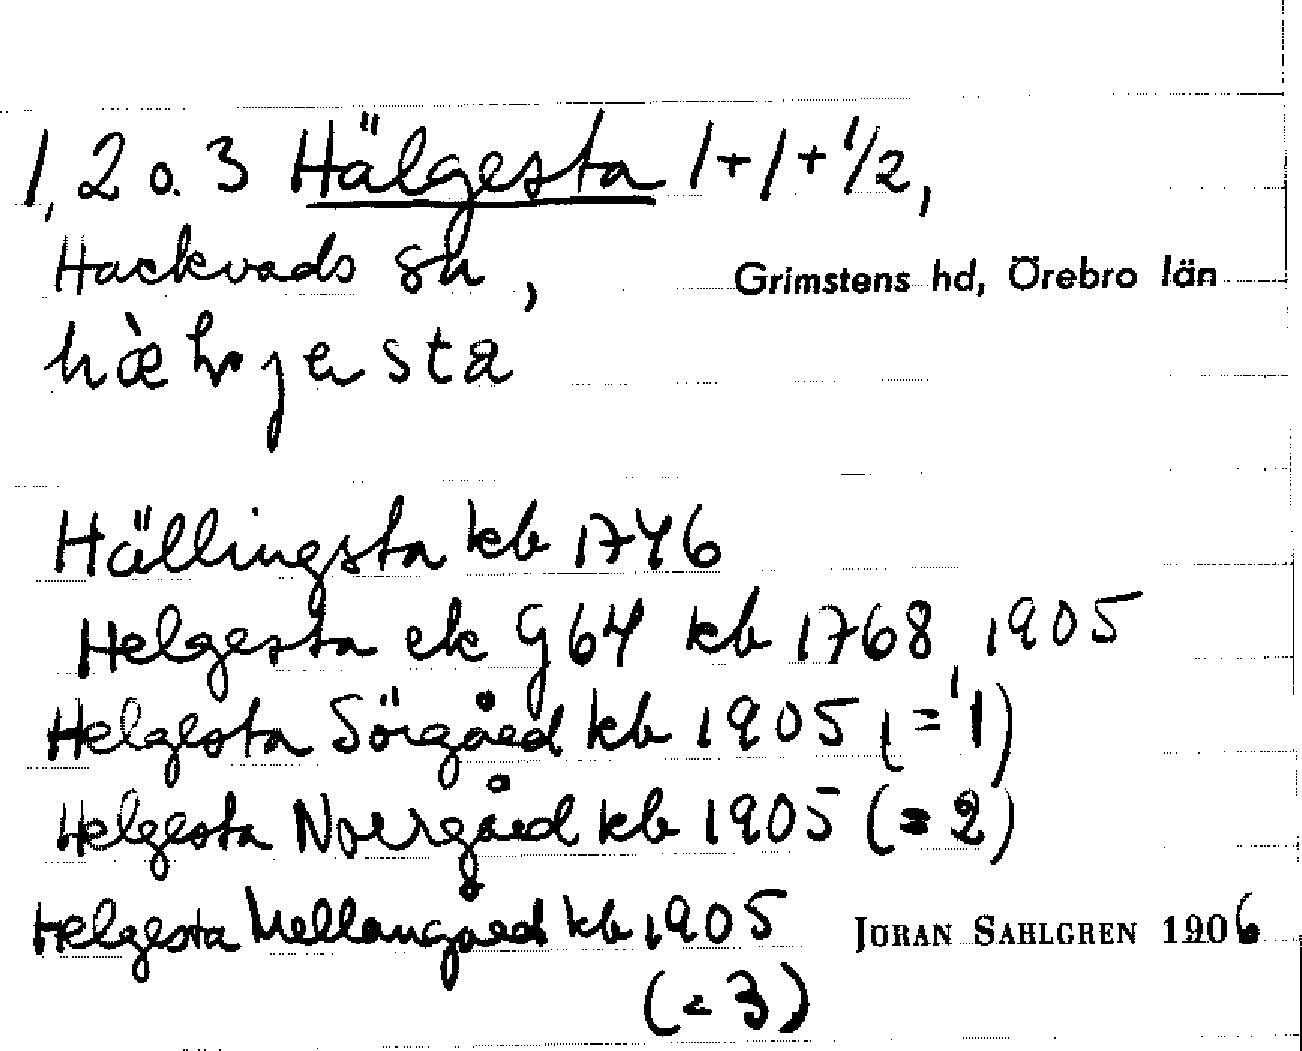 1, 2 o. 3 Hälgesta 1+1+1/2,
Hackvads sn, Grimstens hd, Örebro län
Hällingsta kb 1746
Helgesta ek G64 kb 1768, 1905
Helgesta Sörgård kb 1905 (=1)
Helgesta Norrgård kb 1905 (=2)
Helgesta Mellangård kb 1905 JÖRAN SAHLGREN 1906
(=3)